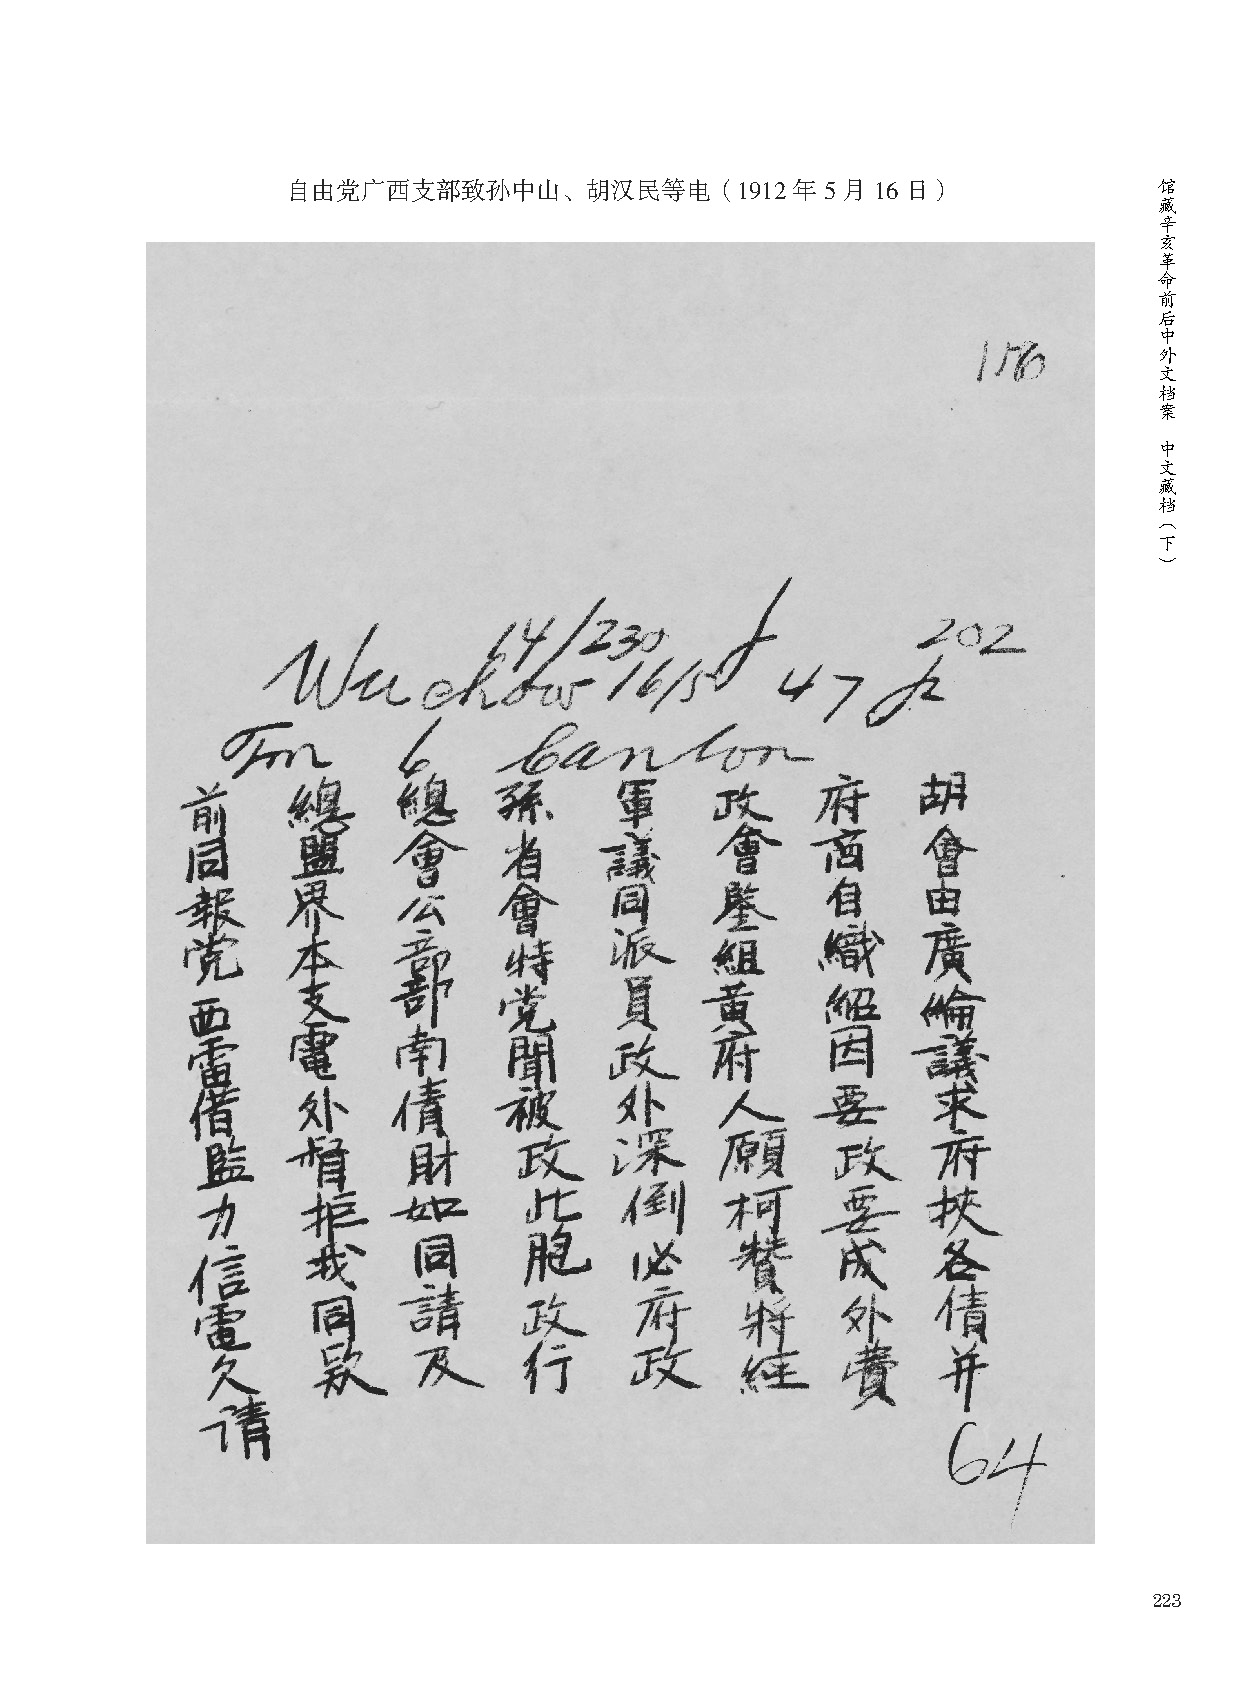 自由党广西支部致孙中山、胡汉民等电（1912 年 5 月 16 日）
馆藏辛亥革命前后中外文档案 中文藏档（下）
156
14/230
202
Wuchow 16/5
47
Fm 6 Canton
前總總孫軍政府胡
同盟會省議會商會
報界公會同鑒自由
党本部特派組織廣
西支部党員黃紹綸
雷電南聞政府因議
借外債被外人要求
監督財政深願政府
力拒如此倒柯要挾
信我同胞必贊成各
電同請政府將外債
久款及行政經費并
请
64
223